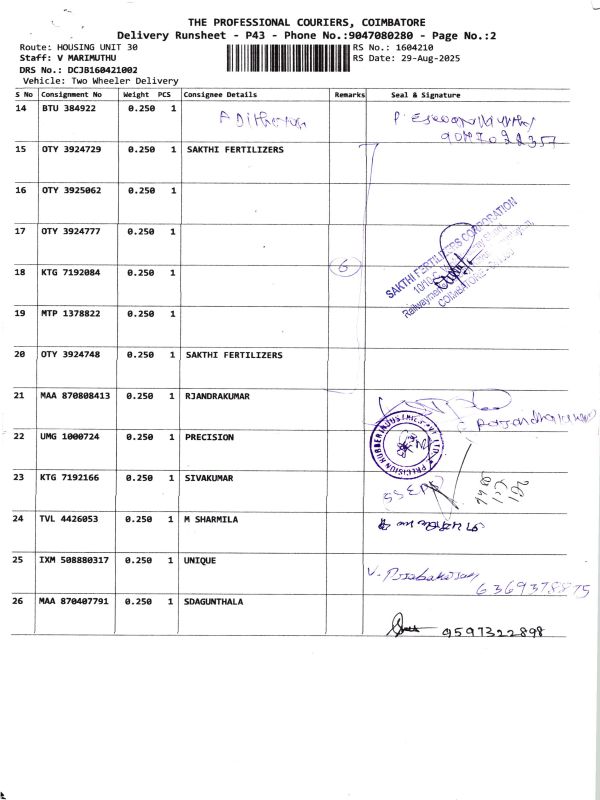 THE PROFESSIONAL COURIERS, COIMBATORE
Delivery Runsheet - P43 - Phone No.:9047080280 - Page No.:2
Route: HOUSING UNIT 30
Staff: V MARIMUTHU
DRS No.: DCJB160421002
Vehicle: Two Wheeler Delivery
RS No.: 1604210
RS Date: 29-Aug-2025
S No Consignment No Weight PCS Consignee Details Remarks Seal & Signature
14 BTU 384922 0.250 1
15 OTY 3924729 0.250 1 SAKTHI FERTILIZERS
16 OTY 3925062 0.250 1
17 OTY 3924777 0.250 1
18 KTG 7192084 0.250 1 6
SAKTHI FERTILIZERS CORPORATION
19 MTP 1378822 0.250 1
20 OTY 3924748 0.250 1 SAKTHI FERTILIZERS
21 MAA 870808413 0.250 1 RJANDRAKUMAR
22 UMG 1000724 0.250 1 PRECISION
PRECISION RUBBER INDUSTRIES PVT LTD
23 KTG 7192166 0.250 1 SIVAKUMAR
24 TVL 4426053 0.250 1 M SHARMILA
25 IXM 508880317 0.250 1 UNIQUE
V. Prabakaran
6369378875
26 MAA 870407791 0.250 1 SDAGUNTHALA
9597322898